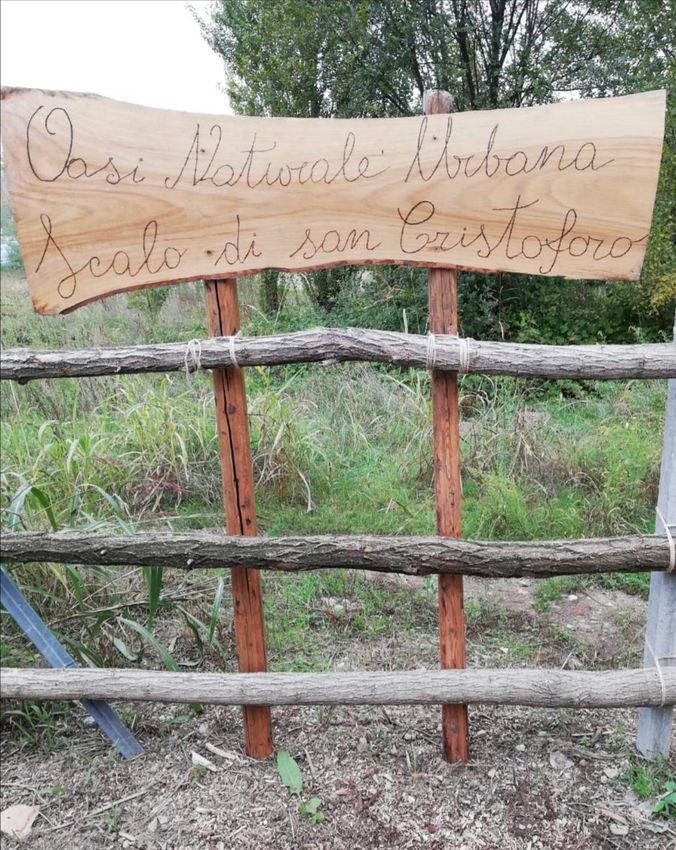 Oasi Naturale Urbana
Scalo di san Cristoforo